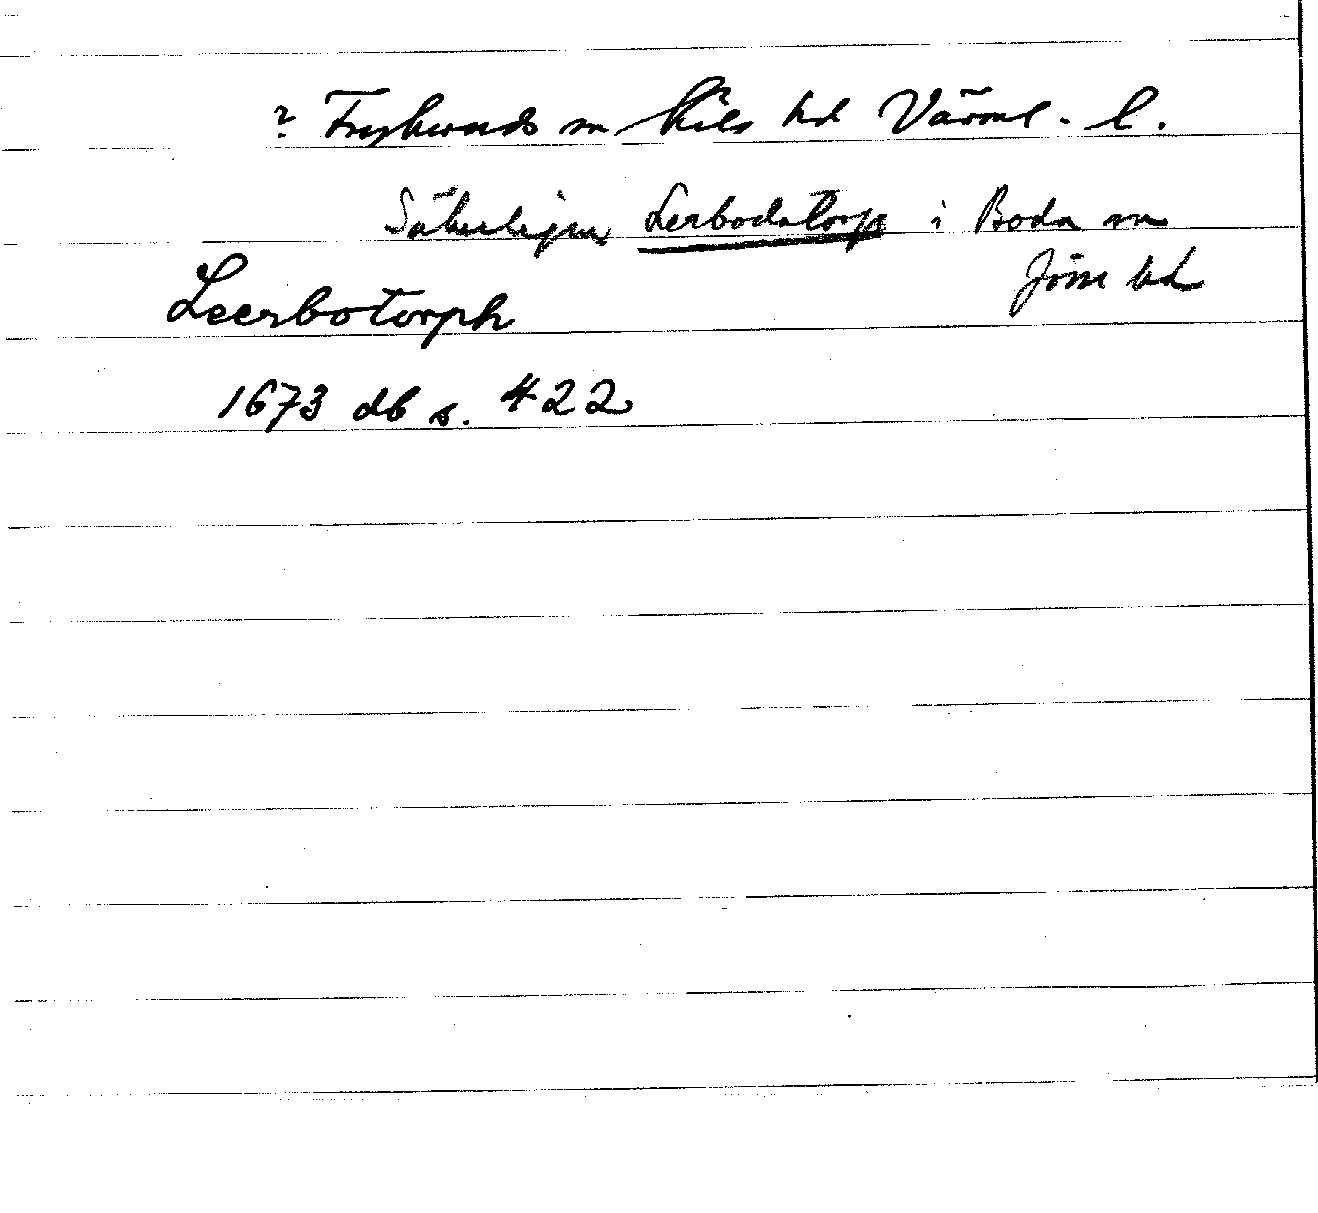 ? Frykeruds sn Kils hd Värml. l.
Säkerligen Lerbodatorp i Boda sn
Jösse hd
Leerbotorph
1673 db s. 422